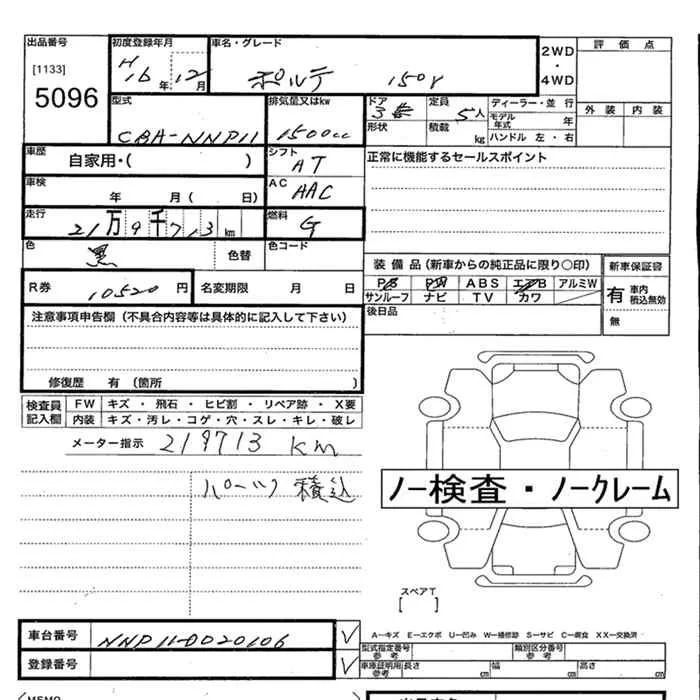 出品番号
[1133]
5096
初度登録年月
H16年12月
車名・グレード
ポルテ 150r
2WD
・
4WD
評価点
外装 内装
型式
CBA-NNP11
排気量又はkw
1500cc
ドア
3
形状
定員
5人
積載
kg
ディーラー・並行
モデル年式 年
ハンドル 左・右
車歴
自家用・( )
シフト
AT
正常に機能するセールスポイント
車検
年 月( 日)
AC
AAC
走行
21万9千713km
燃料
G
色
黒
色替
色コード
R券
10520円
名変期限 月 日
装備品(新車からの純正品に限り○印)
P/S PW ABS エアB アルミW
サンルーフ ナビ TV カワ
後日品
新車保証書
有 車内積込無効
無
注意事項申告欄(不具合内容等は具体的に記入して下さい)
修復歴 有 (箇所 )
検査員記入欄
FW キズ・飛石・ヒビ割・リペア跡・X要
内装 キズ・汚レ・コゲ・穴・スレ・キレ・破レ
メーター指示 219713 km
パーツ積込
ノー検査・ノークレーム
スペアT
[ ]
車台番号 NNP11-0020106 ✓
登録番号 ✓
A―キズ E―エクボ U―凹み W―補修跡 S―サビ C―腐食 XX―交換済
型式指定番号 参考
類別区分番号 参考
車庫証明用 参考 長さ cm 幅 cm 高さ cm
MEMO